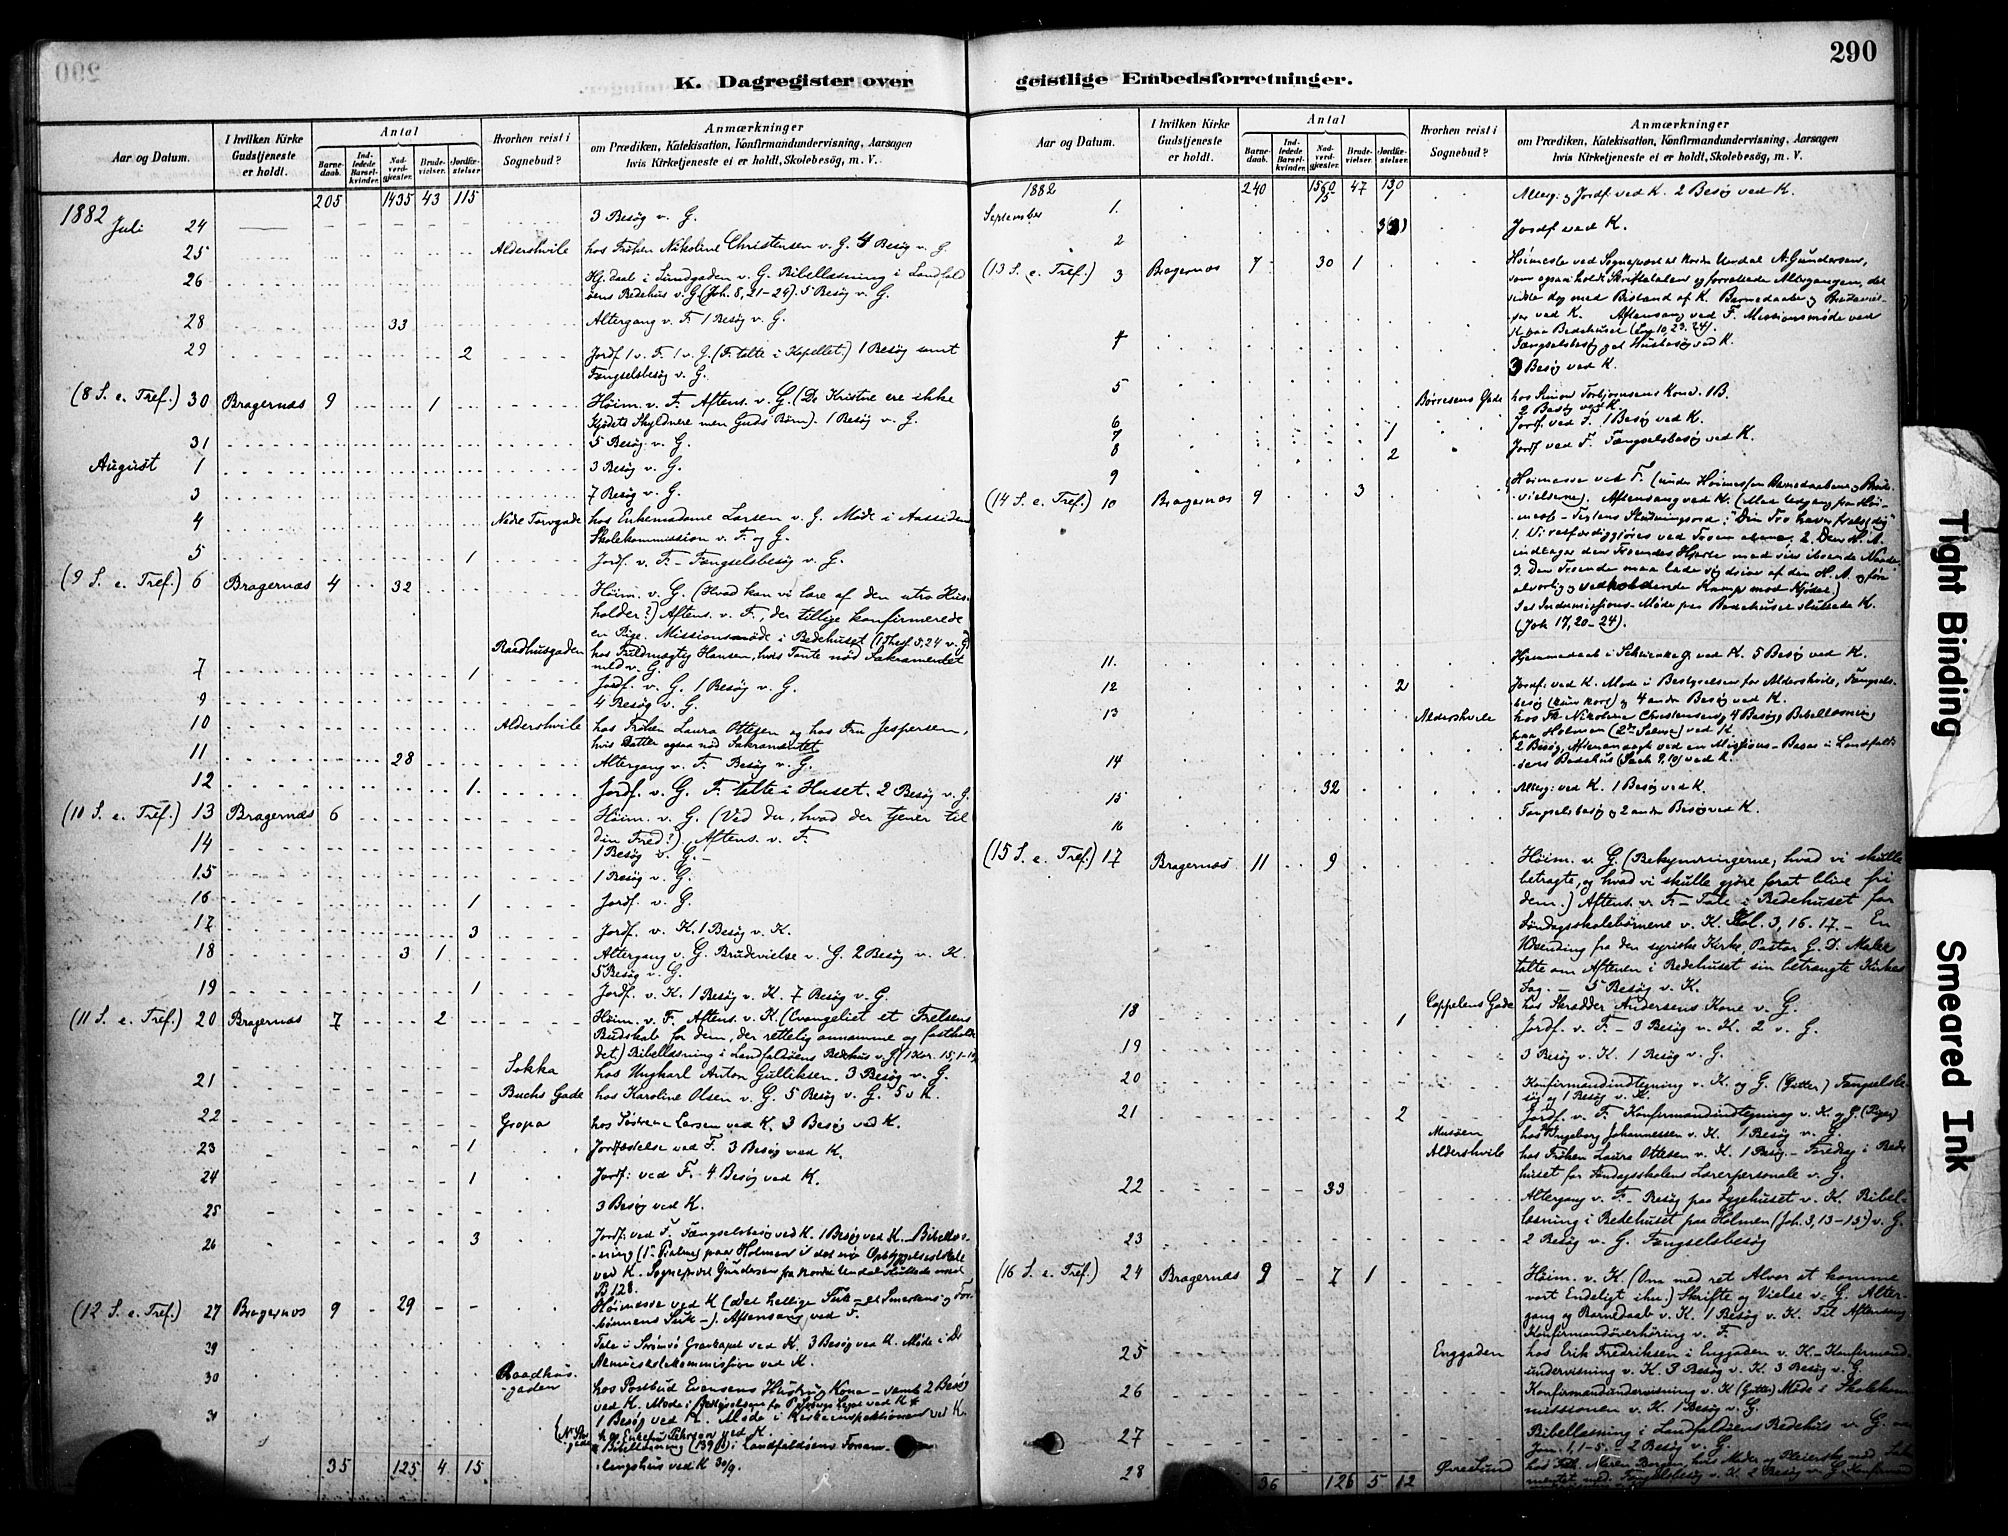 290
K. Dagregister over
geistlige Embedsforretninger.
Aar og Datum.
I hvilken Kirke Gudstjeneste er holdt.
Antal
Barnedaab.
Indledede Barselkvinder.
Nadverdgjæster.
Brudevielser.
Jordfæstelser
Hvorhen reist i Sognebud?
Anmærkninger
om Prædiken, Katekisation, Konfirmandundervisning, Aarsagen
hvis Kirketjeneste ei er holdt, Skolebesøg, m. V.
205 1435 43 115
1882 Juli 24 3 Besøg v. G.
25 Aldershvile hos Frøken Nikoline Christensen v. G. 4 Besøg v. G.
26 Hj. daab i Lundgaden v. G. Bibellæsning i Landfald
øens Bedehus v. G. (Joh. 8, 21-24). 5 Besøg v. G.
28 33 Altergang v. F. 1 Besøg v. G.
29 2 Jordf. 1 v. F. 1 v. G. (F. talte i Kapellet.) 1 Besøg samt
Fængselsbesøg v. G.
(8 S. e. Tref.) 30 Bragernæs 9 1 Høim. v. F. Aftens. v. G. (De Kristne ere ikke
Kjødets Skyldnere men Guds Børn). 1 Besøg v. G.
31 5 Besøg v. G.
August 1 3 Besøg v. G.
3 7 Besøg v. G.
4 Nedre Torvgade hos Enkemadame Larsen v. G. Møde i Aassiden
Skolekommission v. F. og G.
5 1 Jordf. v. F. - Fængselsbesøg v. G.
(9 S. e. Tref.) 6 Bragernæs 4 32 Høim. v. G. (Hvad kan vi lære af den utro Hus-
holder?) Aftens. v. F., der tillige konfirmerede
en Pige. Missionsmøde i Bedehuset (1 Thess 5,24 v. G)
Raadhusgaden hos Fuldmægtig Hansen, hvis Tante nød Sakramentet
med v. G.
7 1 Jordf. v. G. 1 Besøg v. G.
9 4 Besøg v. G.
10 Aldershvile hos Frøken Laura Ottesen og hos Fru Jespersen,
hvis Datter ogsaa nød Sakramentet
11 28 Altergang v. F. Besøg v. G.
12 1 Jordf. v. G. F. talte i Huset. 2 Besøg v. G.
(10 S. e. Tref.) 13 Bragernæs 6 Høim. v. G. (Ved du, hvad der tjener til
din Fred?) Aftens. v. F.
14 1 Besøg v. G.
15 1 Besøg v. G.
16 1 Jordf. v. G.
17 3 Jordf. v. K. 1 Besøg v. K.
18 3 1 Altergang v. G. Brudevielse v. G. 2 Besøg v. K.
5 Besøg v. G.
19 1 Jordf. v. K. 1 Besøg v. K. 7 Besøg v. G.
(11 S. e. Tref.) 20 Bragernæs 7 2 Høim. v. F. Aftens. v. K. (Evangeliet et Frelsens
Budskab for dem, der rettelig annamme og fastholde
det) Bibellæsning i Landfaldøens Bedehus v. G (1 Kor. 15,1-
Sokka hos Ungkarl Anton Gulliksen. 3 Besøg v. G.
21 Buchs Gade hos Karoline Olsen v. G. 5 Besøg v. G. 5 v K.
22 Gropa hos Larsen ved K. 3 Besøg ved K.
23 1 Jordfæstelse ved F. 3 Besøg ved K.
24 1 Jordf: ved F. 4 Besøg ved K.
25 3 Besøg ved K.
26 3 Jordf. ved F. Fængselsbesøg ved K. 1 Besøg ved K. Bibellæs-
ning (1ste Psalme) paa Holmen
ved K. Sognepræst Gundersen fra Nordre Undal sluttede med
(12 S. e. Tref.) 27 Bragernæs 9 29 Høimesse ved K
Aftensang ved F.
29 Tale i Gravkapel ved K. 3 Besøg ved K. Møde i
kommission ved K.
30 Raadhus-gaden hos Postbud Evensens Kone - samt 2 Besøg
ved K. Møde i Bestyrelsen
1 Besøg ved K. Møde i Kirkeinspektionen ved K.
ved K.
Bibellæsning i Landfaldøens Forsam-
lingshus ved K 30/9.
35 125 4 15
Aar og Datum.
I hvilken Kirke Gudstjeneste er holdt.
Antal
Barnedaab.
Indledede Barselkvinder.
Nadverdgjæster.
Brudevielser.
Jordfæstelser.
Hvorhen reist i Sognebud?
Anmærkninger
om Prædiken, Katekisation, Konfirmandundervisning, Aarsagen
hvis Kirketjeneste ei er holdt, Skolebesøg, m. V.
1882 240 1560 47 130
September 1. 15 1 Alterg. og Jordf. ved K. 2 Besøg ved K.
2 Jordf. ved K.
(13 S. e. Tref.) 3 Bragernæs 7 30 1 Høimesse ved Sognepræst til Nordre Undal N. Gundersen,
som ogsaa holdt Skriftetalen og forrettede Altergangen, det
sidste dog med Bistand af K. Barnedaab og Brudeviel-
ser ved K. Aftensang ved F. Missionsmøde ved
K paa Bedehuset
4 Fængselsbesøg og et Husbesøg ved K.
3 Besøg ved K.
5 Børresens Gade hos Torbjørnsens Kone.
2 Besøg ved K.
6 Jordf. ved F. 1 Besøg ved K.
7 1
8 2 Jordf ved F. Fængselsbesøg ved K.
9
(14 S. e. Tref.) 10 Bragernæs 9 3 Høimesse ved F. (under Høimessen Barnedaabene og Brude-
vielserne). Aftensang ved K.
"Din Tro haver frelst dig"
1. Vi retfærdiggjøres ved Troen alene. 2. Den H. A.
indtager den Troendes Hjerte med sin iboende Naade.
3. Den Troende maa lade sig drive af den H. A. og føre
alvorlig og vedholdende Kamp mod Kjødet.)
Indremissions-Møde paa Bedehuset sluttede K.
(Joh 17, 20-24).
11. Hjemmedaab i ved K. 5 Besøg ved K.
12 2 Jordf. ved K. Møde i Bestyrelsen for Aldershvile, Fængsels-
besøg og 4 andre Besøg ved K.
13 Aldershvile hos Frk. Nikoline Christensen, 4 Besøg, Bibellæsning
paa Holmen ved K
14 2 Besøg, ved en Missions-Basar i Landfald-
øens Bedehus ved K.
15 32 Alterg: ved K. 1 Besøg ved K.
16 Fængselsbesøg og 2 andre Besøg ved K.
(15 S. e. Tref.) 17 Bragernæs 11 9 Høim. v. G. (Bekymringerne, hvad vi skulle
betragte, og hvad vi skulle gjøre forat blive fri
dem.) Aftens. v. F. - Tale i Bedehuset for
Søndagsskolebørnene v. K. Kol. 3, 16. 17. - En
Udsending fra den syriske Kirke, Pastor G. D. Malek
talte om Aftenen i Bedehuset sin betrængte Kirkes
Sag. - 5 Besøg v. K.
18 Cappelens Gade hos Skrædder Andersens Kone v. G.
1 Jordf. v. F. - 3 Besøg v. K. 2 v. G.
19 3 Besøg v. K. 1 Besøg v. G.
20 Konfirmandindtegning v. K. og G. (Gutter) Fængselsbe-
søg og 1 Besøg v. K.
21 2 Jordf. v. F. Konfirmandindtegning v. K. og G. (Piger)
Musøen hos Ingeborg Johannessen v. K. 1 Besøg v. G.
Aldershvile hos Frøken Laura Ottesen v. K. 1 Besøg. - Foredrag i Bede
huset for Søndagsskolens Lærerpersonale v. G.
22 33 Altergang v. F. - Besøg paa Sygehuset v. K. Bibel-
læsning i Bedehuset paa Holmen (Joh. 3, 13-15) v. G.
23 2 Besøg v. G. Fængselsbesøg
(16 S. e. Tref.) 24 Bragernæs 9 7 1 Høim. v. K. (Om med ret Alvor at komme
vort Endeligt ihu.) Skrifte og Vielse v. G. Alter-
gang og Barnedaab v. K. 1 Besøg v. K. Til Aftensang
Konfirmandoverhøring v. F.
25 Enggaden hos Erik Fredriksen i Enggaden v. K. - Konfirmand-
undervisning v. K. 3 Besøg v. K. 3 Besøg v. G.
26 Konfirmandundervisning v. K (Gutter) Møde i Skolekom
missionen v. K. 1 Besøg v. G.
27 Bibellæsning i Landfaldøens Bedehus v. G.
1, 1-5. 2 Besøg v. G.
28 Øvresund hos Maren Borgen, hvis Moder og Pleierske nød Sakra
mentet med. Fængselsbesøg v. K. 2 Besøg v. G. Konfirmand
36 126 5 12
Tight Binding
Smeared Ink